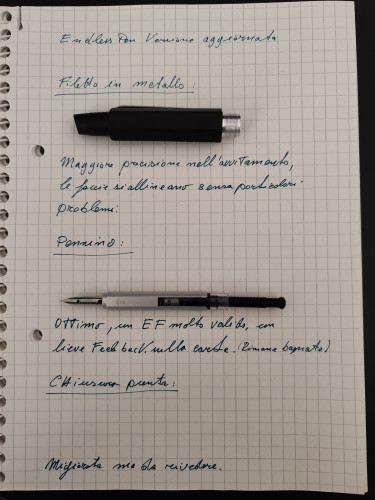 Endless Pen Versione aggiornata
Filetto in metallo:
Maggiore precisione nell'avvitamento,
le facce si allineano senza particolari
problemi.
Pennino:
Ottimo, un EF molto valido, un
lieve Feedback sulla carta. (Rimane bagnato)
CHiusura punta:
Migliorata ma da rivedere.